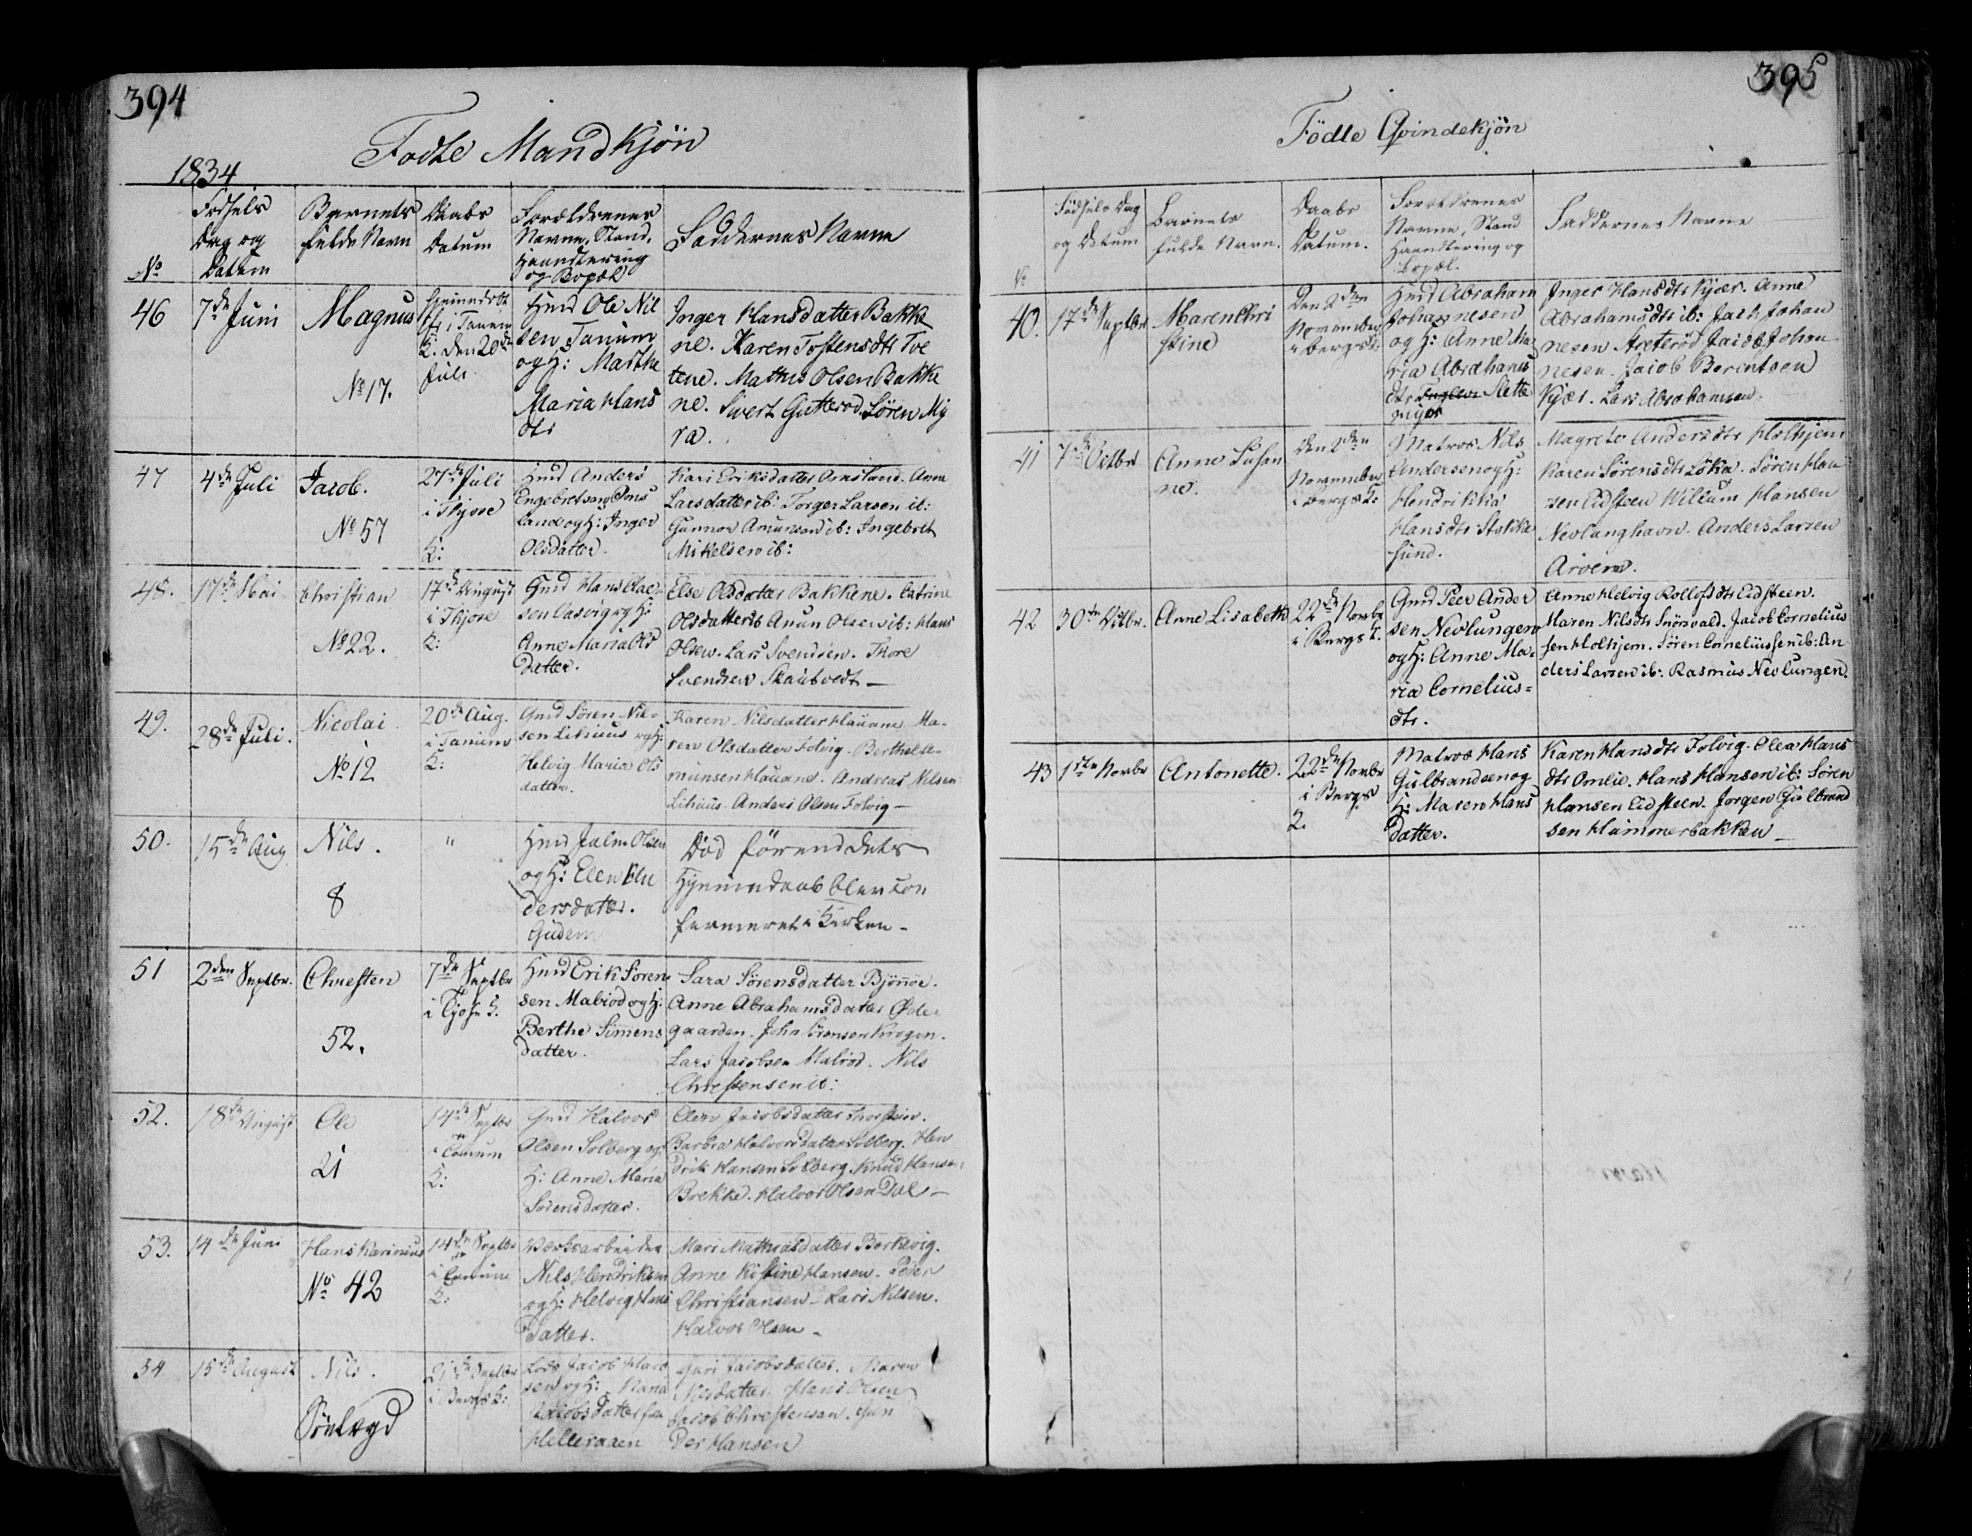 394
Fødte Mandkjøn
1834
No
Fødsels
Dag og
Datum
Barnets
fulde Navn
Daabs
Datum
Forældrenes
Navne, Stand,
Haandtering
og Bopæl
Faddernes Navne
46
7de Juni
Magnus
No 17.
i Tanum
K. den 20de
Juli
Huusmd Ole Nil
sen Tanum
og H: Marthe
Maria Hans
dtr
Inger Hansdatter Bakke
ne. Karen Tostensdtr Tve
tene. Mathis Olsen Bakke
ne. Sivert Gutterød Søren My
ra.
47
4de Juli
Jacob.
No 57
27de Juli
i Hjose
K:
Huusmd Anders
Engebretsen Ons
land og H: Inger
Olsdatter.
Kari Eriksdatter Onsland. Anne
Larsdatter ib: Torger Larsen ib:
Gunnor Amundsen ib: Ingebret
Mikelsen ib:
48.
17de Mai
Christian
No 22.
17de August
i Hjose
K:
Gmd Hans Clae
sen Oasvig og H:
Anne Maria Ols
datter.
Else Olsdatter Bakkene. Catrine
Olsdatter ib Anun Olsen ib: Hans
Olsen. Lars Svendsen. Thore
Svendsen Skaubvedt —
49.
28de Juli.
Nicolai
No 12
20de Aug.
i Tanum
K:
Gmd Søren Nil-
sen Lilius og H:
Helvig Maria Ols
datter.
Karen Nilsdatter Hauane Ma-
ren Olsdatter Folvig. Berthel
munsen Hauane. Andreas Nilsen
Lilius. Anders Olsen Folvig —
50.
15de Aug
Nils.
8
"
Huusmd Jalm Olsen
og H: Elen An
dersdatter.
Gudem
Død førend dets
Hjemmedaab blev con
fermeret i Kirken —
51
2den Septbr.
Christen
52.
7de Septbr
i Hjose K.
Huusmd Erik Søren
sen Malerød og H:
Berthe Simens
datter.
Sara Sørensdatter Bjønnoe.
Anne Abrahamsdatter Øde-
gaarden. John Sørensen Krogen.
Lars Jacobsen Malerød. Nils
Christensen ib:
52.
18de August
Ole
21
14de Septbr
i Tanum
K:
Gmd Halvor
Olsen Solberg og
H: Anne Maria
Sørensdatter.
Olea Jacobsdatter Torstein.
Barbra Halvorsdatter Solberg. Hen
drik Hansen Solberg. Knud Hansen
Brekke. Halvor Olsen Dal —
53.
14de Juni
Hans Karinius
No 42
14de Septbr
i Tanum
K:
Værksarbeider
Nils Hendriksen
og H: Helvig Hans
datter.
Mari Mathiasdatter Barkevig.
Anne Kistine Hansen. Peder
Christiansen. Lars Nilsen.
Halvor Olsen —
54
15de August
Nils.
Sønlægd
21de Septbr
i Bergs K:
Lods Jacob Hans
sen og H: Maria
Jacobsdatter fra
Helleraaen
Guri Jacobsdatter. Maren
Nilsdatter. Hans Olsen
Jacob Christensen. Gun
der Hansen
395
Födte Qvindekjön
No
Födsels Dag
og Datum
Barnets
fulde Navn.
Daabs
Datum.
Forældrenes
Navne, Stand
Haandtering og
Bopæl.
Faddernes Navne
40.
17de Septbr
Maren Chri
stine
Den 2den
November
i Bergs K:
Huusmd Abraham
Johannesen
og H: Anne Ma-
ria Abrahams
dtr Slette
myer
Inger Hansdtr Kjær. Anne
Abrahamsdtr ib: Jach Johan
nesen Areterød Jacob Johan-
nesen. Jacob Berentsen
Kjær. Lars Abrahamsen.
41
7de Octbr
Anne Susan
ne.
Den 2den
November
i Bergs K:
Matros Nils
Andersen og H:
Hendrikka
Hansdtr Stokke
sund.
Magrete Andersdtr Holhjem
Karen Sørensdtr Löka. Søren Han-
sen Eidsteen Willum Hansen
Nevlunghavn. Anders Larsen
Aroen.
42
30te Octbr.
Anne Lisabeth
22de Novbr
i Bergs K.
Gmd Peer Ander
sen Nevlungen
og H: Anne Ma-
ria Cornelius-
dtr.
Anne Helvig Rollofsdtr Eidsteen.
Maren Nilsdtr Snörvald. Jacob Cornelius
sen Holhjem. Søren Corneliussen ib: An
ders Larsen ib: Rasmus Nevlungen.
43
1ste Novbr
Antonette.
22de Novbr
i Bergs
K.
Matros Hans
Gulbrandsen og
H: Maren Hans
datter.
Karen Hansdtr Folvig. Olea Hans
dtr Omlie. Hans Hansen ib: Søren
Hansen Eidsteen. Jorgen Gulbrand
sen Hummerbakken —